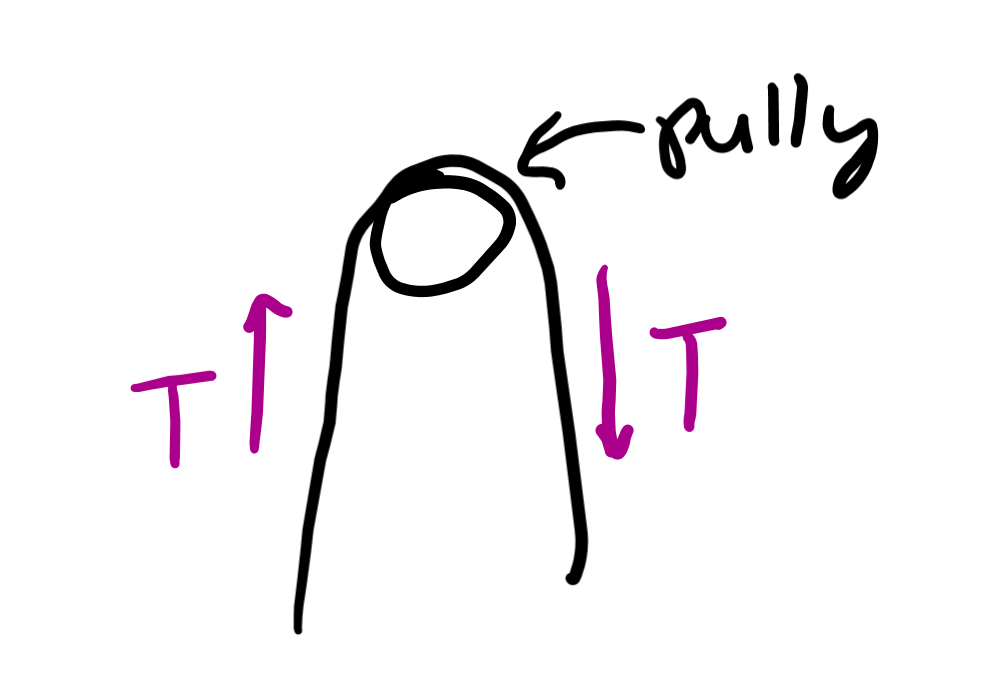 pully
T
T